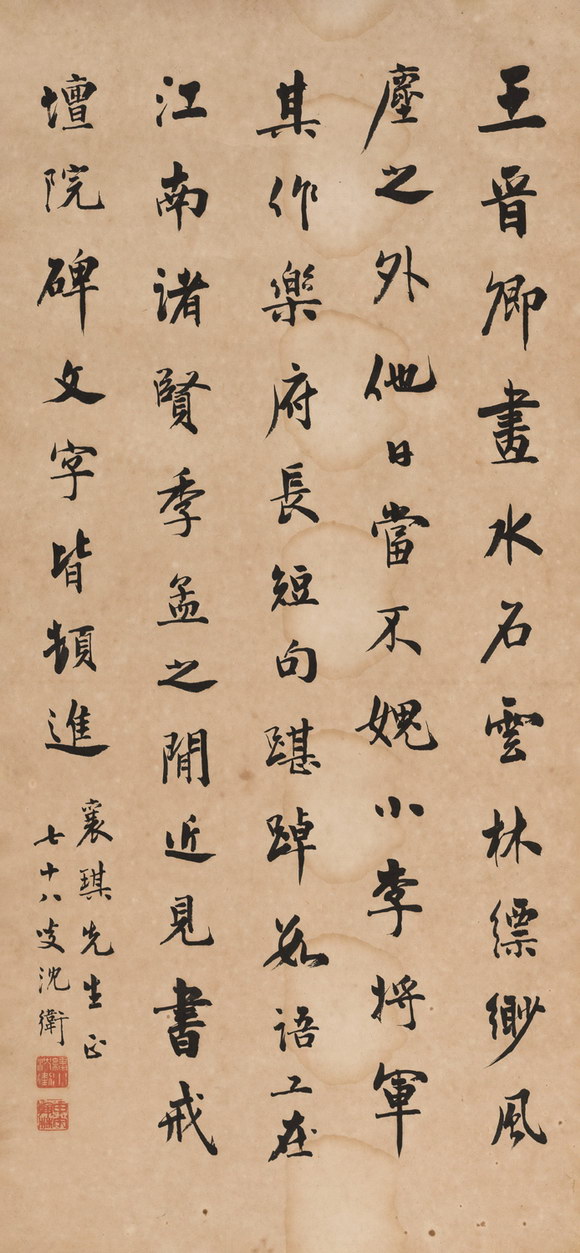 王晉卿畫水石雲林縹緲風
塵之外他日當不媿小李將軍
其作樂府長短句踸踔數語工在
江南諸賢季孟之閒近見書戒
壇院碑文字皆頓進
襄琪先生正
七十八叟沈衛